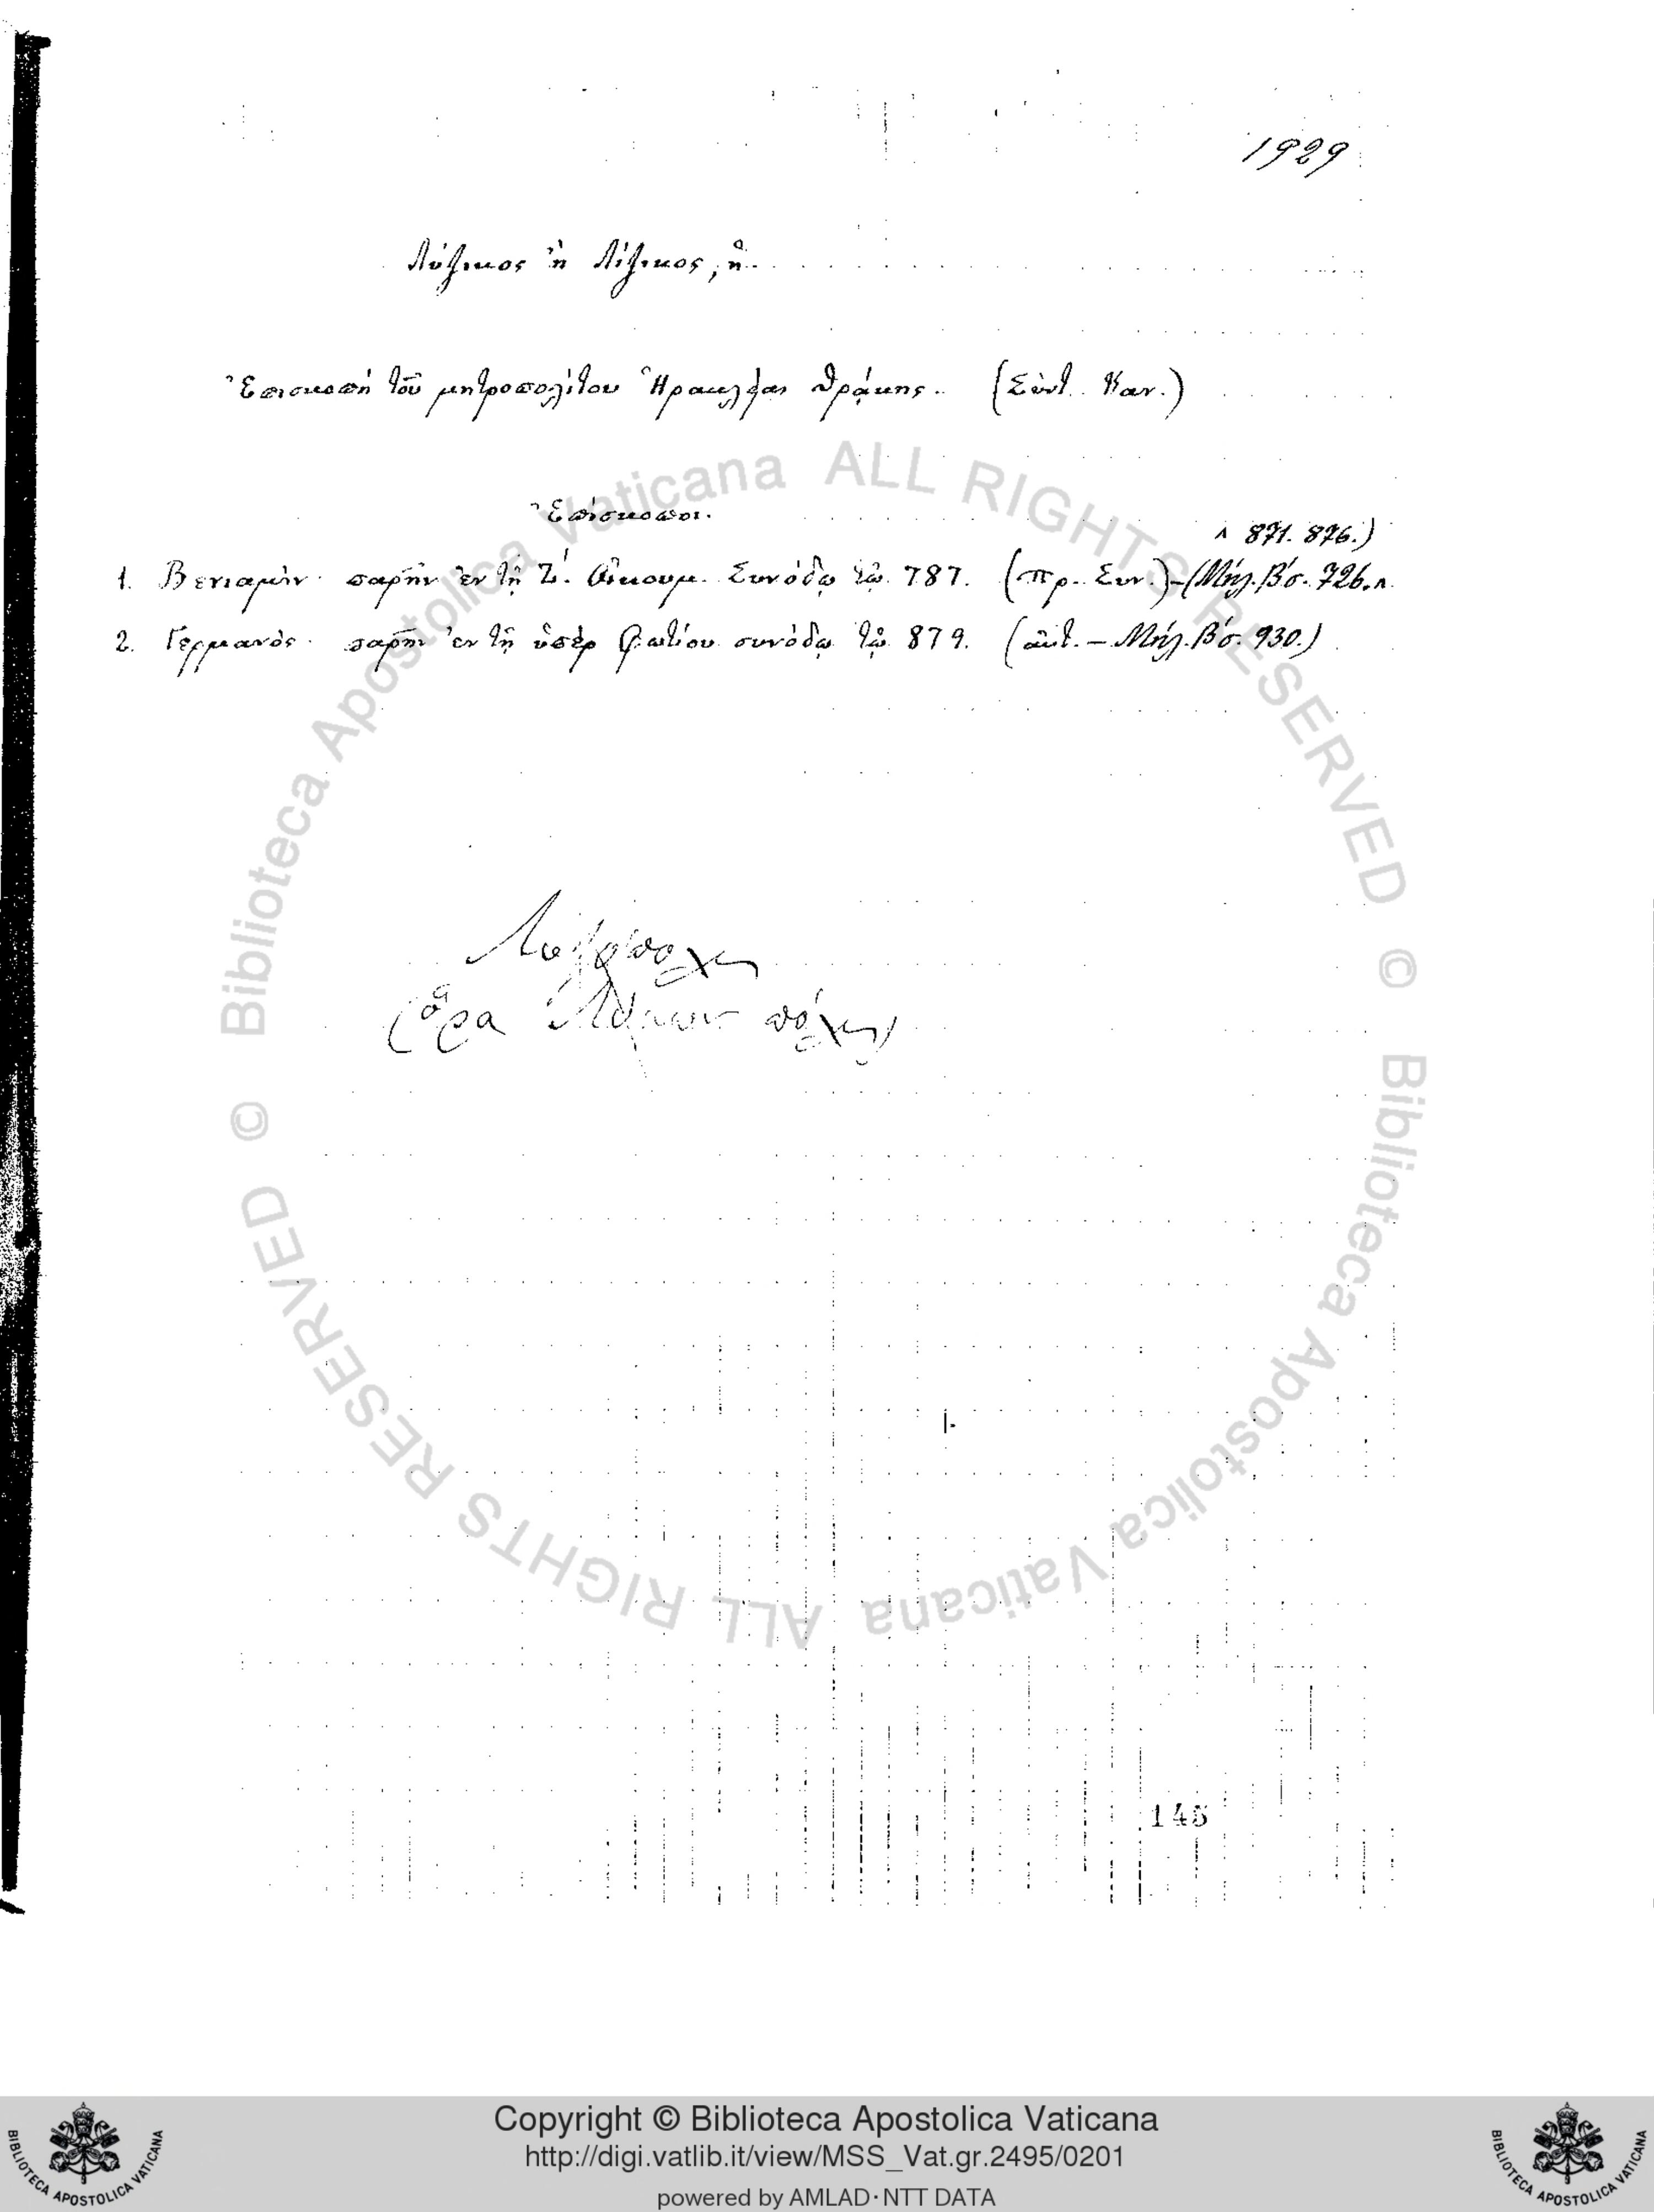 1929
Λύζικος ἢ Λίζικος, ἡ.
Ἐπισκοπὴ τοῦ μητροπολίτου Ἡρακλείας Θράκης. (Σύντ. Καν.)
Ἐπίσκοποι.
^ 871. 876.)
1. Βενιαμὶν· παρῆν ἐν τῇ Ζ΄. Οἰκουμ. Συνόδῳ τῷ 787. (Πρ. Συν.)-(Μήλ. Βσ. 726.^
2. Γερμανὸς· παρῆν ἐν τῇ ὑπὲρ Φωτίου συνόδῳ τῷ 879. (αὐτ. – Μήλ. Βσ. 930.)
(ὅρα πόλις)
146
Biblioteca Apostolica Vaticana ALL RIGHTS RESERVED ©
Biblioteca Apostolica Vaticana ALL RIGHTS RESERVED ©
Copyright © Biblioteca Apostolica Vaticana
http://digi.vatlib.it/view/MSS_Vat.gr.2495/0201
powered by AMLAD·NTT DATA
BIBLIOTECA APOSTOLICA VATICANA
BIBLIOTECA APOSTOLICA VATICANA